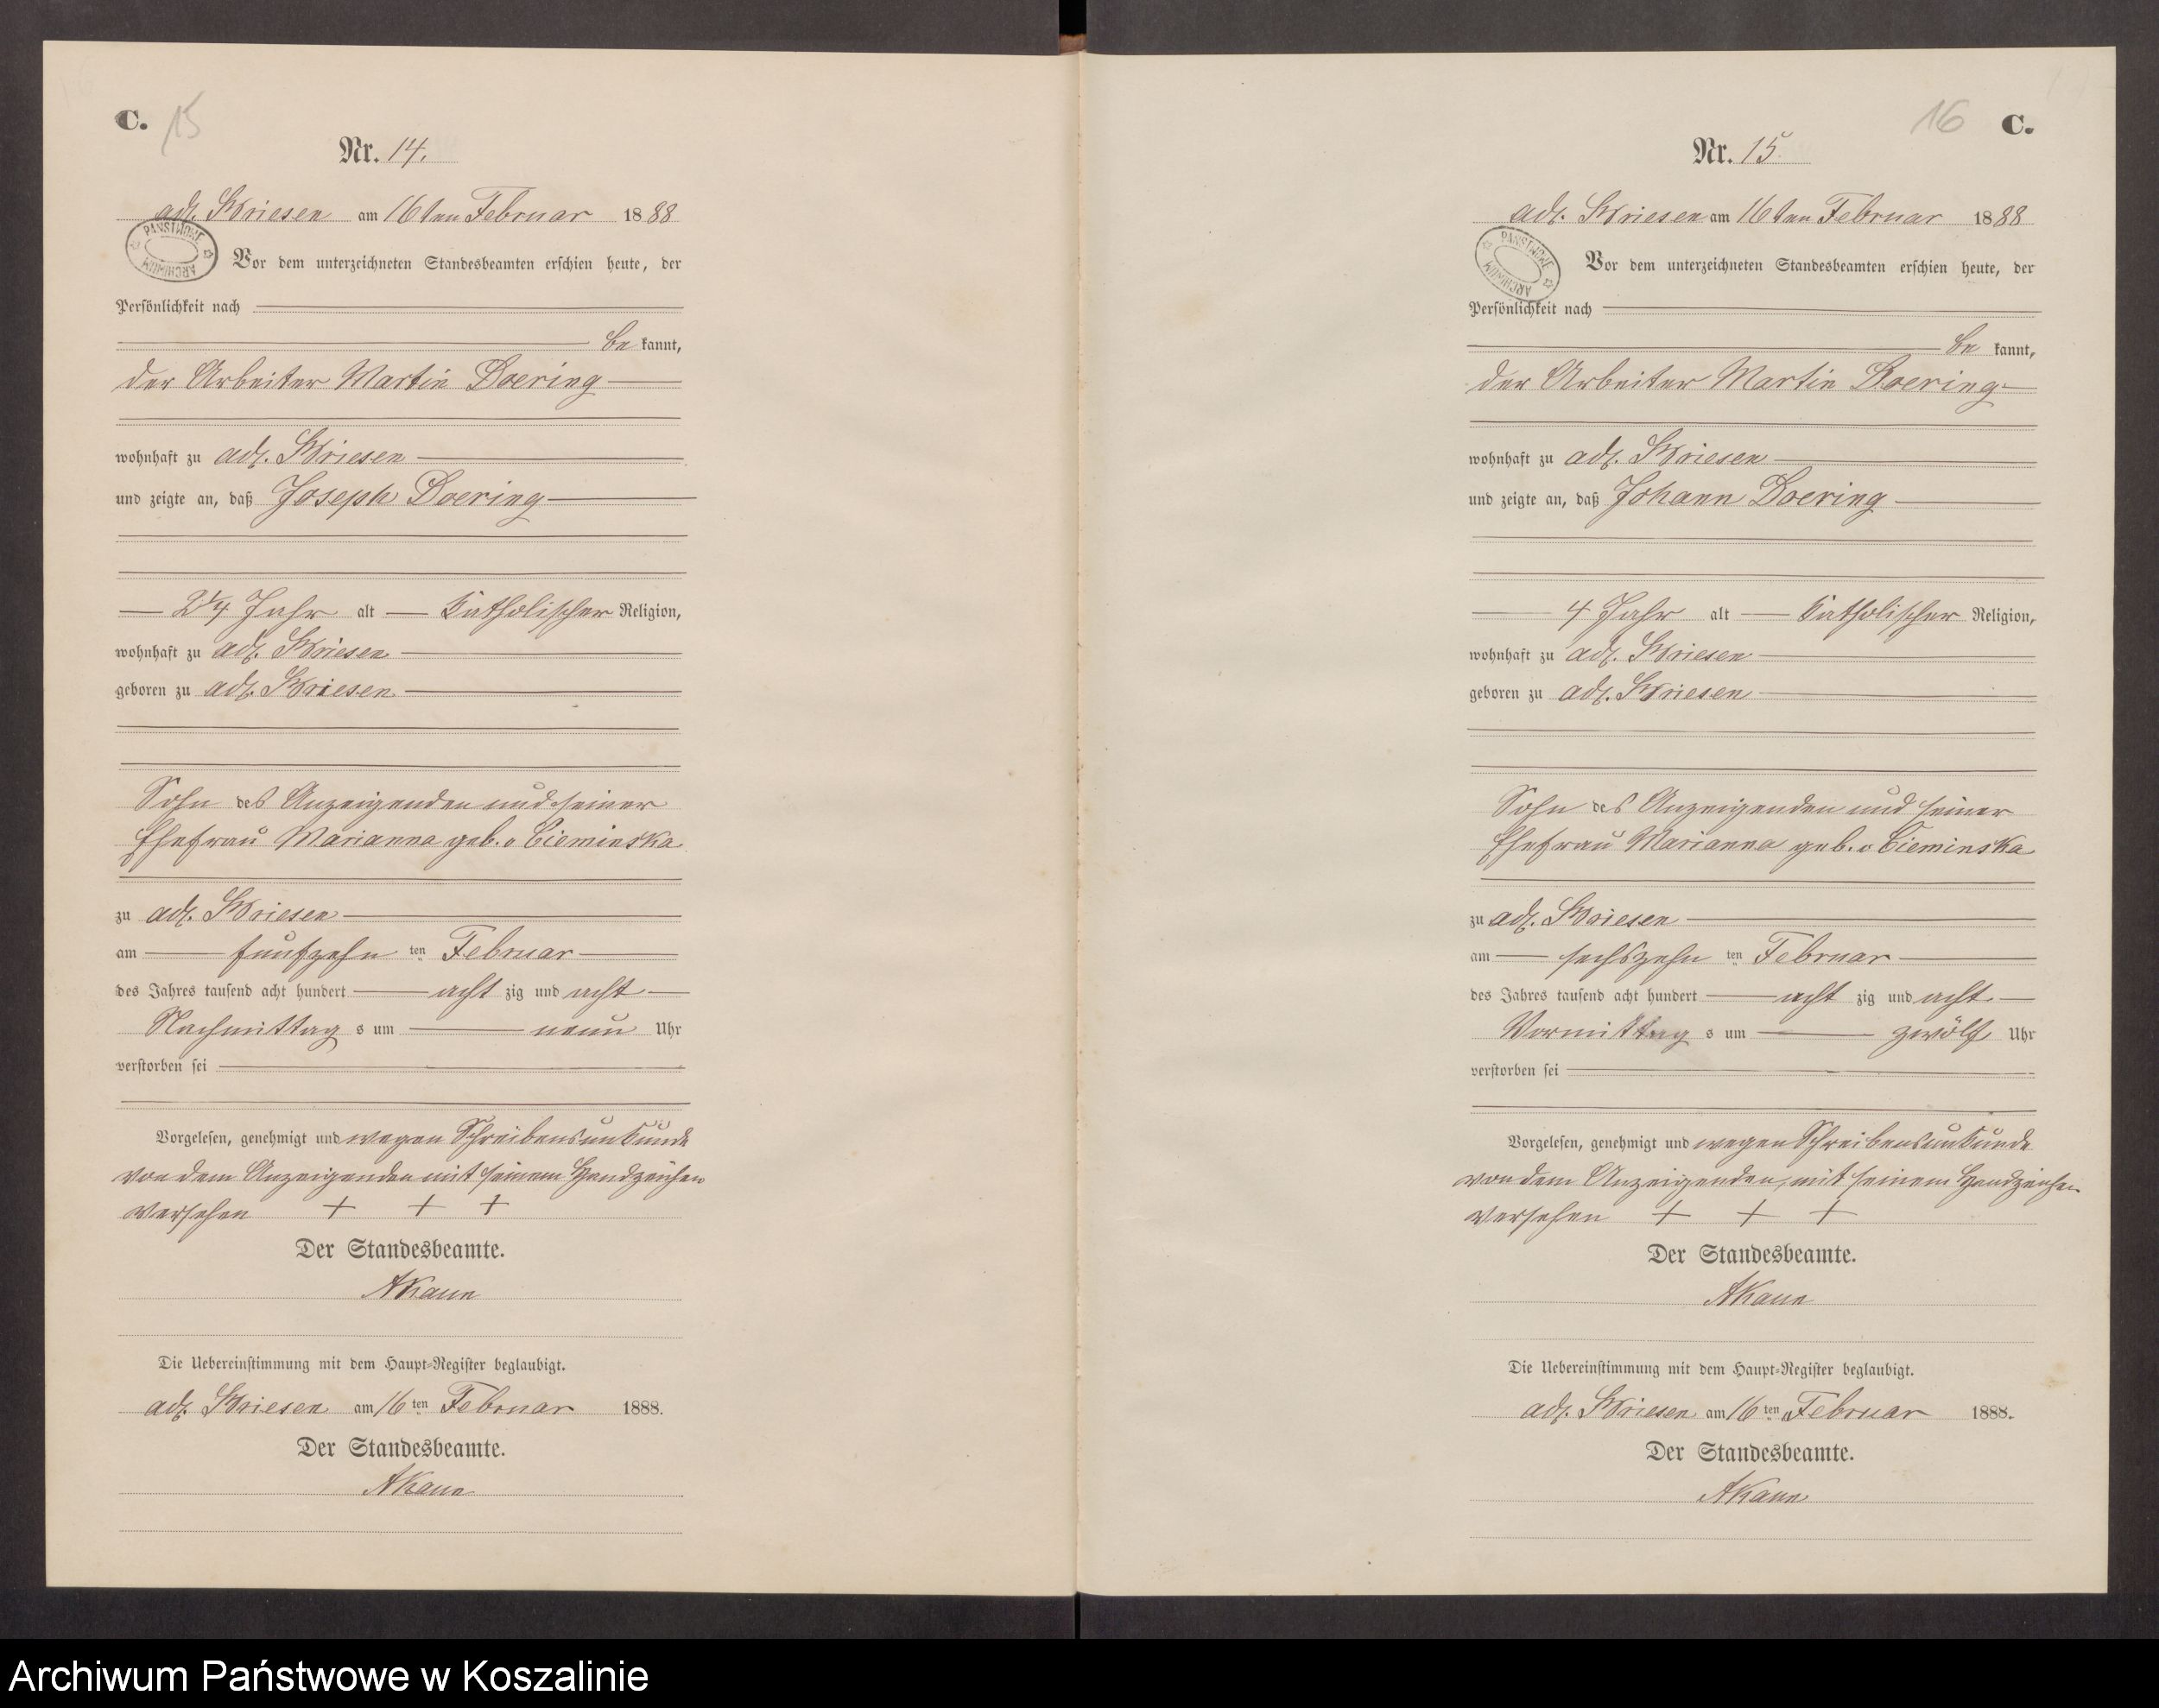 C. 15
Nr. 14.
adl. Briesen am 16ten Februar 1888
PAŃSTWOWE ARCHIWUM
Vor dem unterzeichneten Standesbeamten erschien heute, der
Persönlichkeit nach
be kannt,
der Arbeiter Martin Doering
wohnhaft zu adl. Briesen
und zeigte an, daß Joseph Doering
2 1/4 Jahr alt katholischer Religion,
wohnhaft zu adl. Briesen
geboren zu adl. Briesen
Sohn des Anzeigenden und seiner
Ehefrau Marianna geb. v Cieminska
zu adl. Briesen
am funfzehn ten Februar
des Jahres tausend acht hundert acht zig und acht
Nachmittag s um neun Uhr
verstorben sei
Vorgelesen, genehmigt und wegen Schreibensunkunde
von dem Anzeigenden mit seinem Handzeichen
versehen + + +
Der Standesbeamte.
Die Uebereinstimmung mit dem Haupt-Register beglaubigt.
adl. Briesen am 16ten Februar 1888.
Der Standesbeamte.
16 C.
Nr. 15.
adl. Briesen am 16ten Februar 1888
PAŃSTWOWE ARCHIWUM
Vor dem unterzeichneten Standesbeamten erschien heute, der
Persönlichkeit nach
be kannt,
der Arbeiter Martin Doering
wohnhaft zu adl. Briesen
und zeigte an, daß Johann Doering
4 Jahr alt katholischer Religion,
wohnhaft zu adl. Briesen
geboren zu adl. Briesen
Sohn des Anzeigenden und seiner
Ehefrau Marianna geb. v Cieminska
zu adl. Briesen
am sechszehn ten Februar
des Jahres tausend acht hundert acht zig und acht
Vormittag s um zwölf Uhr
verstorben sei
Vorgelesen, genehmigt und wegen Schreibensunkunde
von dem Anzeigenden, mit seinem Handzeichen
versehen + + +
Der Standesbeamte.
Die Uebereinstimmung mit dem Haupt-Register beglaubigt.
adl. Briesen am 16ten Februar 1888.
Der Standesbeamte.
Archiwum Państwowe w Koszalinie